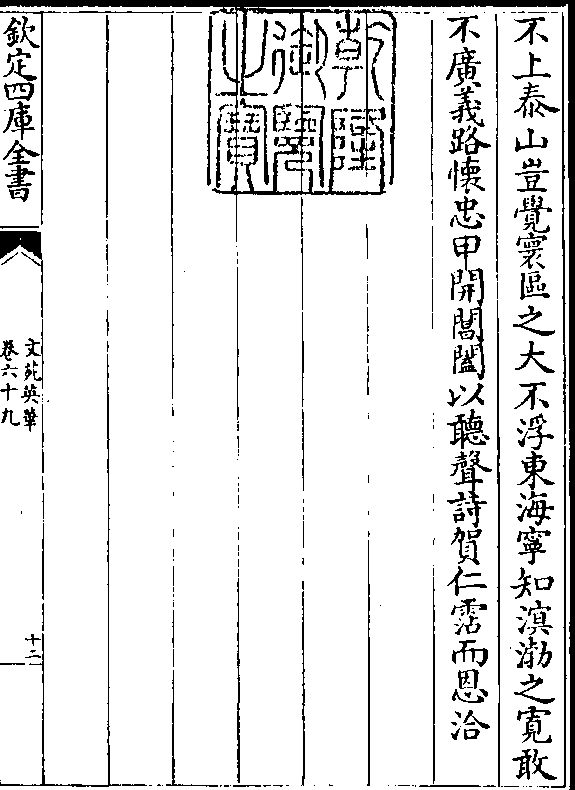 不上泰山豈覺寰區之大不浮東海寧知溟渤之寛敢
不廣義路懷忠甲開閶闔以聽聲詩賀仁霑而恩洽
乾隆
御覽
之寶
欽定四庫全書
文苑英華
卷六十九
十二